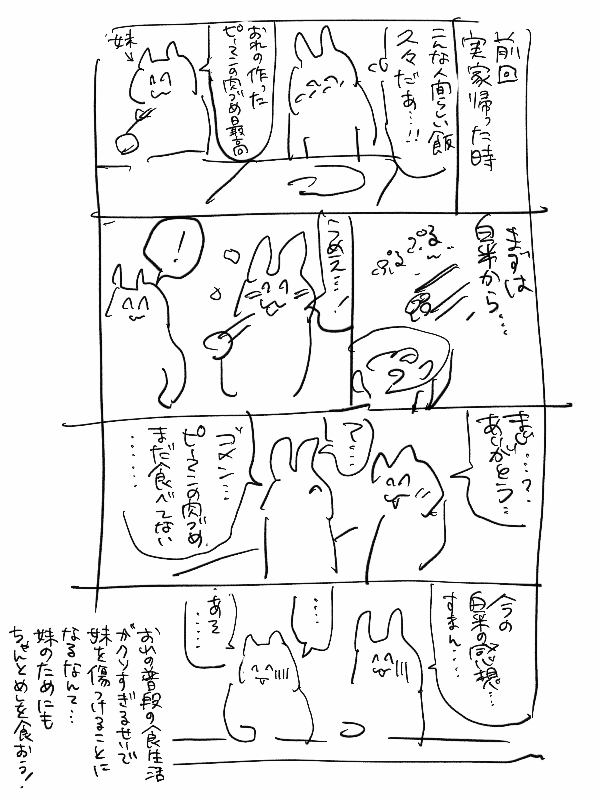 前回
実家帰った時
こんな人間らしい飯
久々だぁ…!!
おれの作った
ピーマンの肉づめ最高
妹
まずは
白米から…
ぷるん
ぷる
うめえ…!
!
まじ…?
ありがとう…
え…
ゴメン…
ピーマンの肉づめ
まだ食べてない
……
今の
白米の感想…
すまん…
……
あそ
……
おれの普段の食生活
がクソすぎるせいで
妹を傷つけることに
なるなんて…
妹のためにも
ちゃんとめしを食おう!